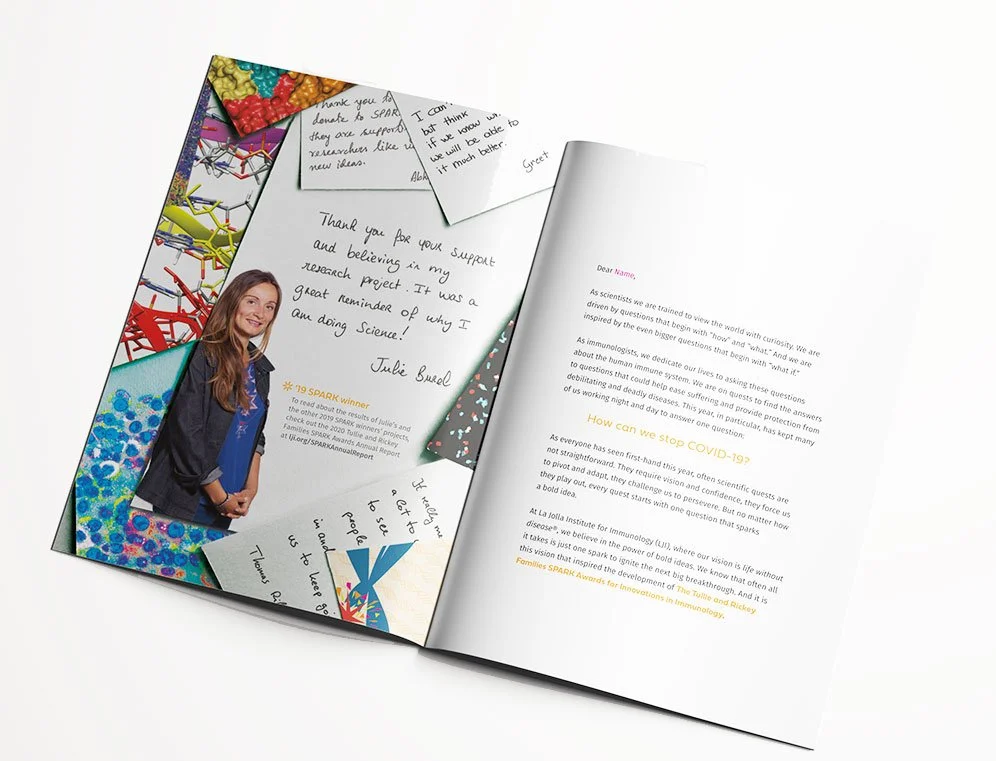 Thank you to
donate to SPAR
they are support
researchers like
new ideas.
I can'
but think
if we know
we will be able to
it much better.
Greet
Thank you for your support
and believing in my
research project. It was a
great reminder of why I
am doing Science!
Julie Burel
'19 SPARK winner
To read about the results of Julie's and
the other 2019 SPARK winners' projects,
check out the 2020 Tullie and Rickey
Families SPARK Awards Annual Report
at lji.org/SPARKAnnualReport
It really me
a lot to
to see
people
in and
us to keep goi
Thomas Ri
Dear Name,
As scientists we are trained to view the world with curiosity. We are
driven by questions that begin with "how" and "what." And we are
inspired by the even bigger questions that begin with "what if."
As immunologists, we dedicate our lives to asking these questions
about the human immune system. We are on quests to find the answers
to questions that could help ease suffering and provide protection from
debilitating and deadly diseases. This year, in particular, has kept many
of us working night and day to answer one question:
How can we stop COVID-19?
As everyone has seen first-hand this year, often scientific quests are
not straightforward. They require vision and confidence, they force us
to pivot and adapt, they challenge us to persevere. But no matter how
they play out, every quest starts with one question that sparks
a bold idea.
At La Jolla Institute for Immunology (LJI), where our vision is life without
disease®, we believe in the power of bold ideas. We know that often all
it takes is just one spark to ignite the next big breakthrough. And it is
this vision that inspired the development of The Tullie and Rickey
Families SPARK Awards for Innovations in Immunology.